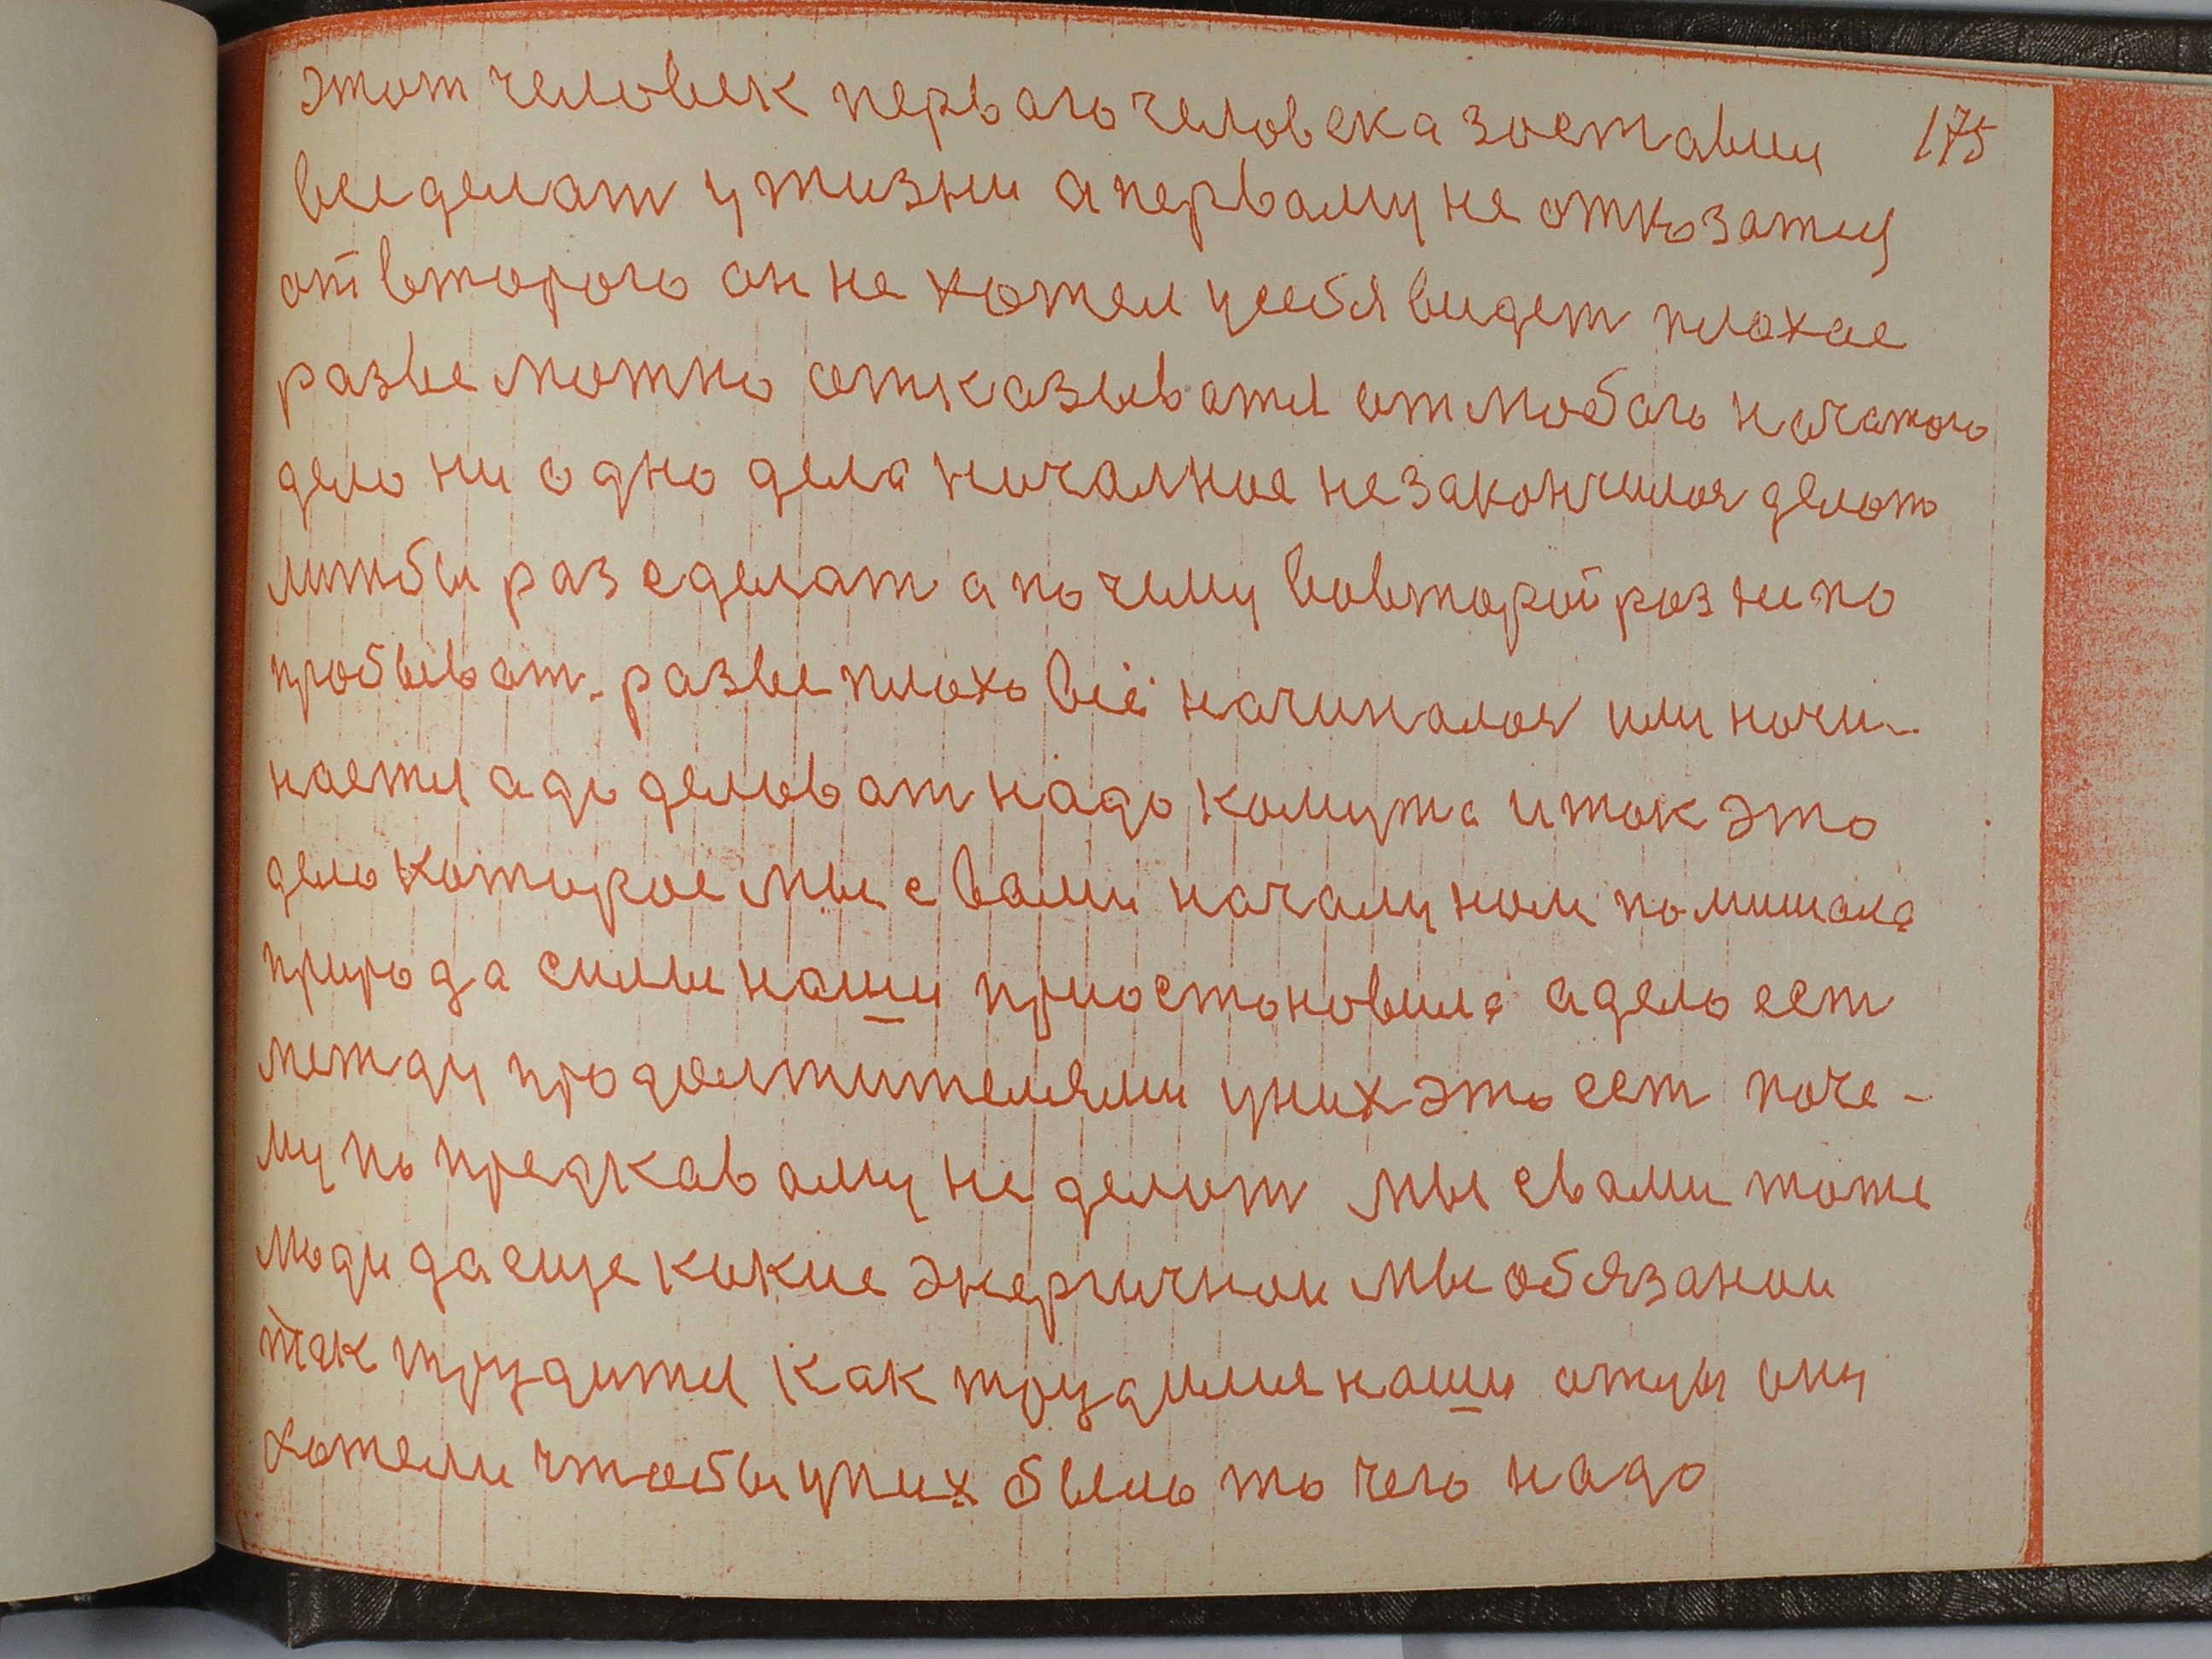 этот человек первого человека зоставил 175
все делат у жизни а первому не отказатця
от второго он не хотел у себя видет плохае
разве можно отказыватся от любого начатого
дело ни одно дела началное не закончилося делать
лижбы раз сделат а почему вовторой раз не по
пробыват. разве плохо всё начиналося или начи-
нается а до делыват надо комута и так это
дело которое мы с вами началу нам помишала
природа силы наши приостоновила а дело ест
между продолжителями у них это ест поче-
му по предкавому не делат мы свами тоже
люди да еще какие энергичнои мы обязанои
так трудится как трудилися наши отцы они
хотели чтобы у них было то чего надо